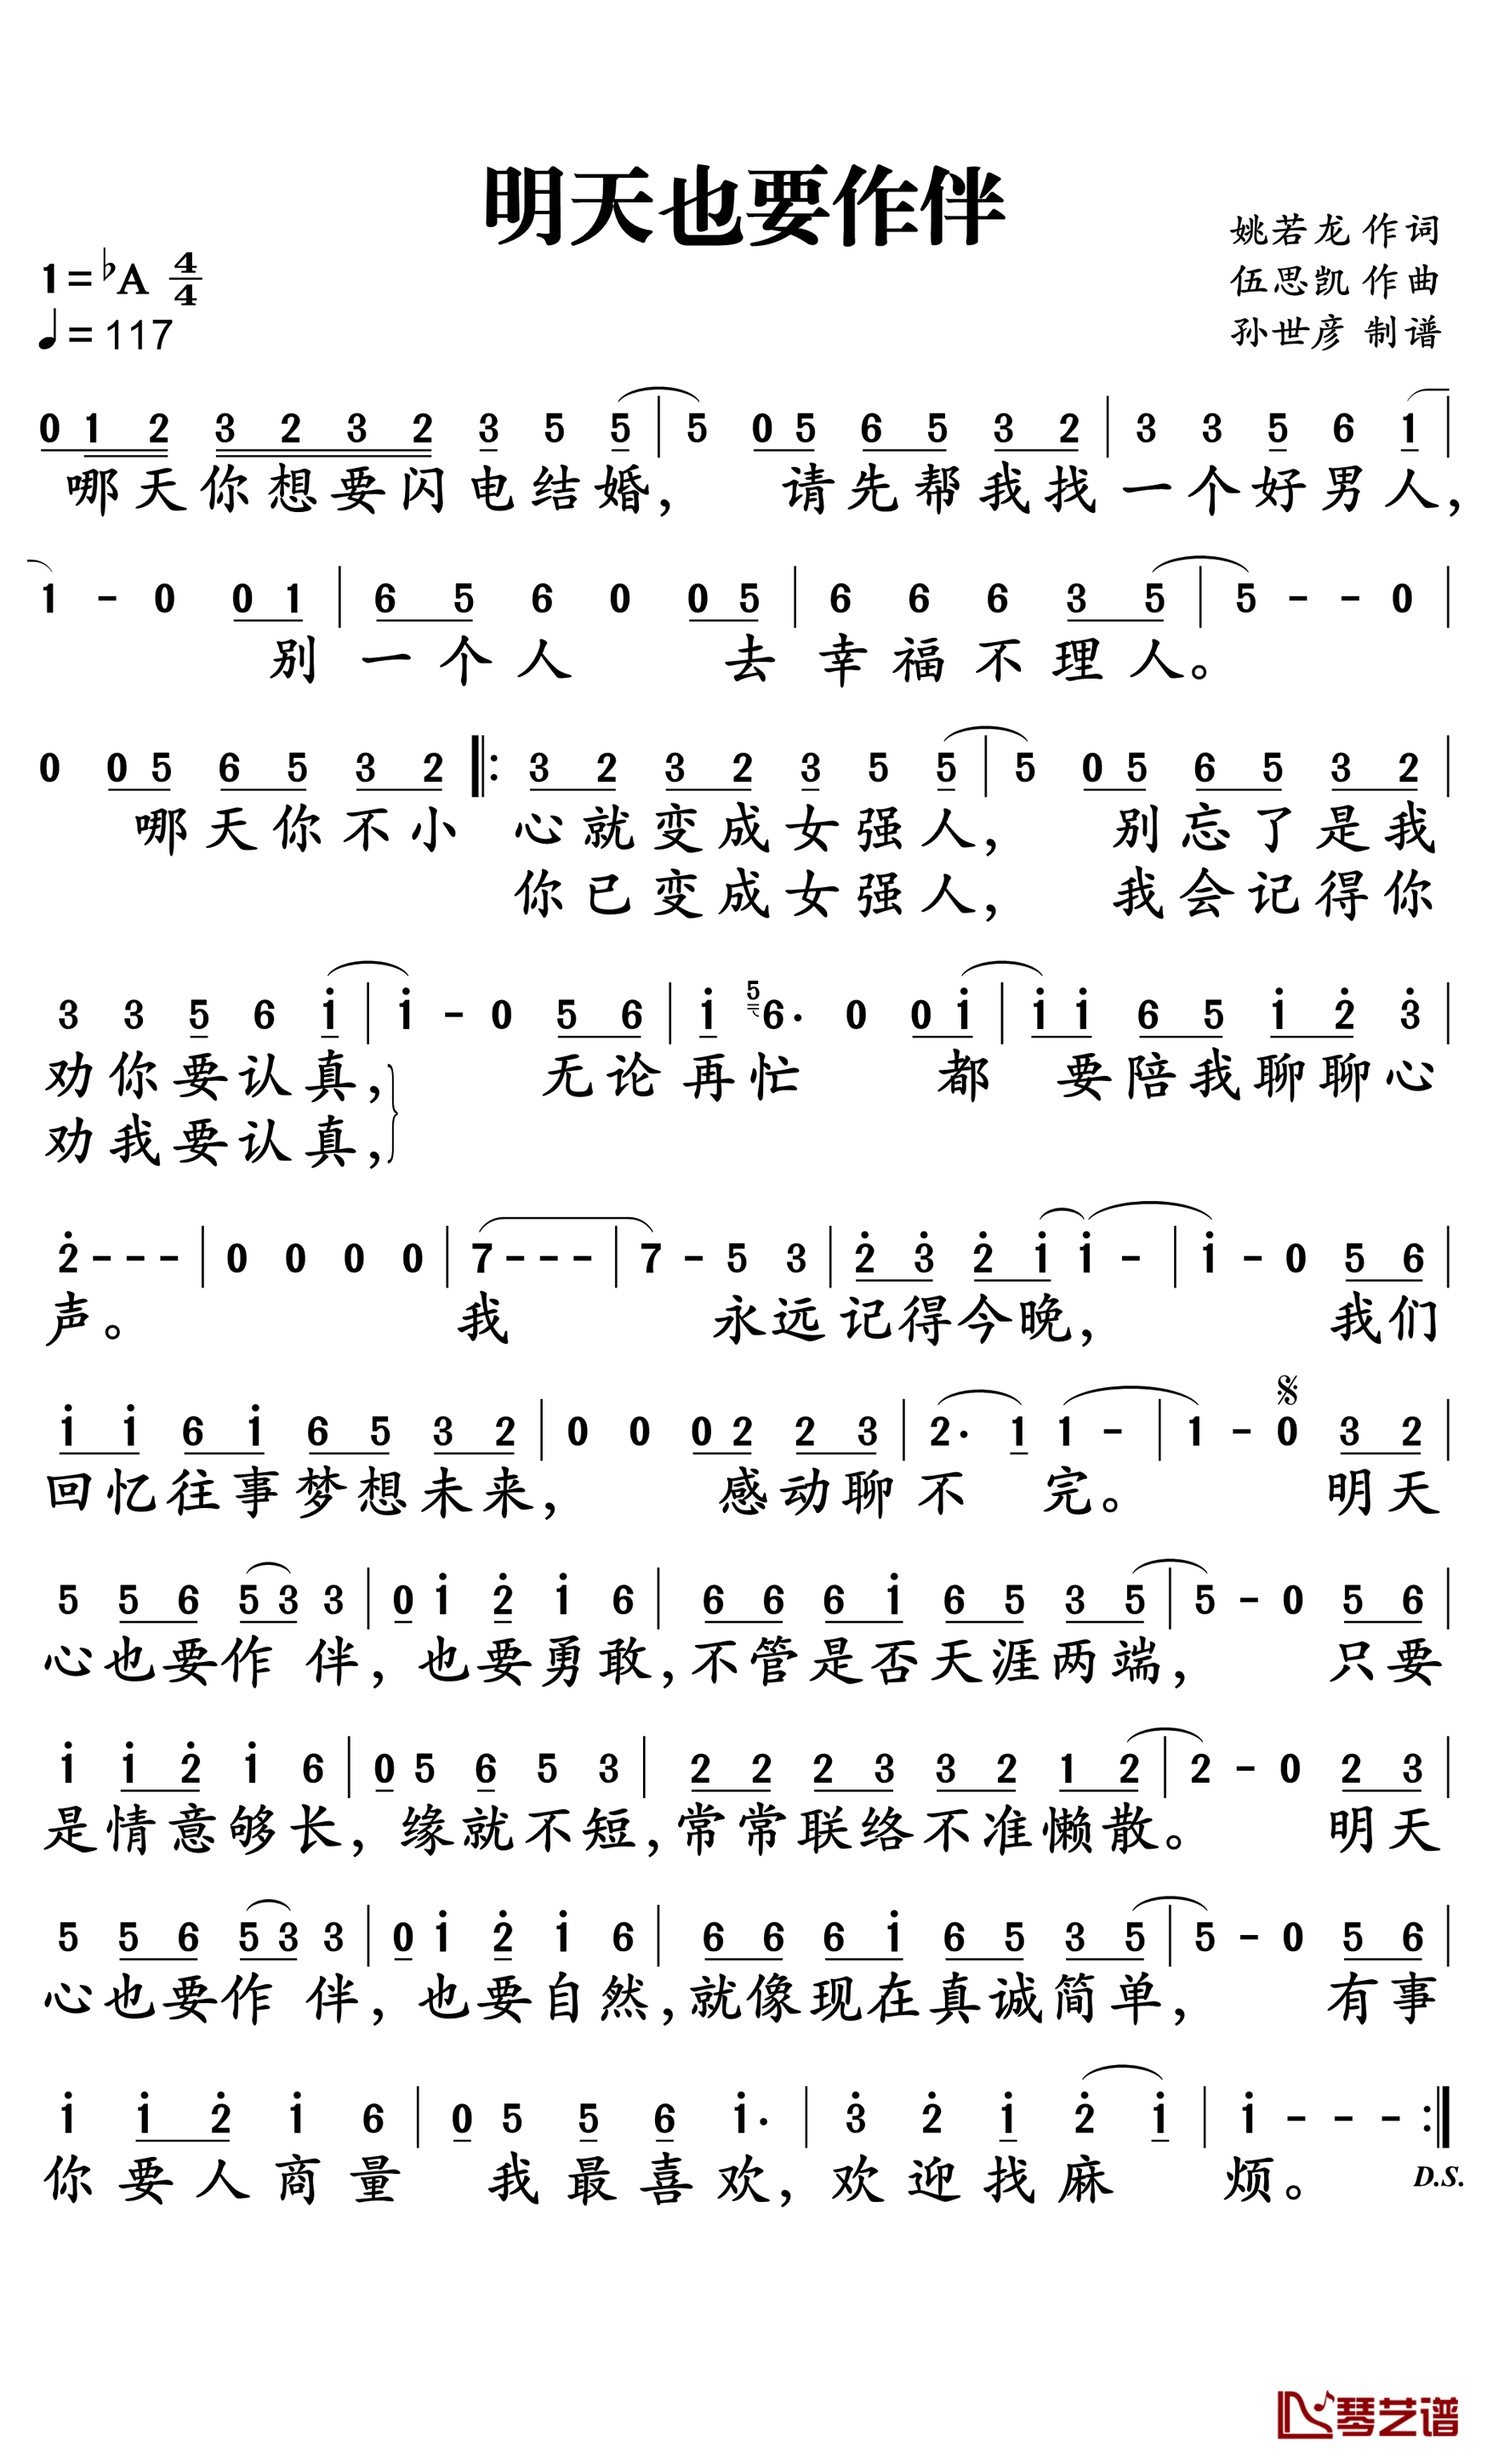 明天也要作伴
姚若龙 作词
1=♭A 4/4
伍思凯 作曲
♩=117
孙世彦 制谱
0 1 2 3 2 3 2 3 5 5 | 5 0 5 6 5 3 2 | 3 3 5 6 1 |
哪天你想要闪电结婚， 请先帮我找一个好男人，
1 - 0 0 1 | 6 5 6 0 0 5 | 6 6 6 3 5 | 5 - - 0 |
别一个人 去幸福不理人。
0 0 5 6 5 3 2 ‖: 3 2 3 2 3 5 5 | 5 0 5 6 5 3 2 |
哪天你不小 心就变成女强人， 别忘了是我
你已变成女强人， 我会记得你
3 3 5 6 i | i - 0 5 6 | i 5 6· 0 0 i | i i 6 5 i 2̇ 3̇ |
劝你要认真， 无论再忙 都 要陪我聊聊心
劝我要认真，
2̇ - - - | 0 0 0 0 | 7 - - - | 7 - 5 3 | 2̇ 3̇ 2̇ i i - | i - 0 5 6 |
声。 我 永远记得今晚， 我们
i i 6 i 6 5 3 2 | 0 0 0 2 2 3 | 2· 1 1 - | 1 - 0 3 2 |
回忆往事梦想未来， 感动聊不 完。 明天
5 5 6 5 3 3 | 0 i 2̇ i 6 | 6 6 6 i 6 5 3 5 | 5 - 0 5 6 |
心也要作 伴，也要勇敢，不管是否天涯两端， 只要
i i 2̇ i 6 | 0 5 6 5 3 | 2 2 2 3 3 2 1 2 | 2 - 0 2 3 |
是情意够长，缘就不短，常常联络不准懒散。 明天
5 5 6 5 3 3 | 0 i 2̇ i 6 | 6 6 6 i 6 5 3 5 | 5 - 0 5 6 |
心也要作 伴，也要自然，就像现在真诚简单， 有事
i i 2̇ i 6 | 0 5 5 6 i· | 3̇ 2̇ i 2̇ i | i - - - :‖
你要人商量 我最喜欢，欢迎找麻 烦。 D.S.
琴艺谱